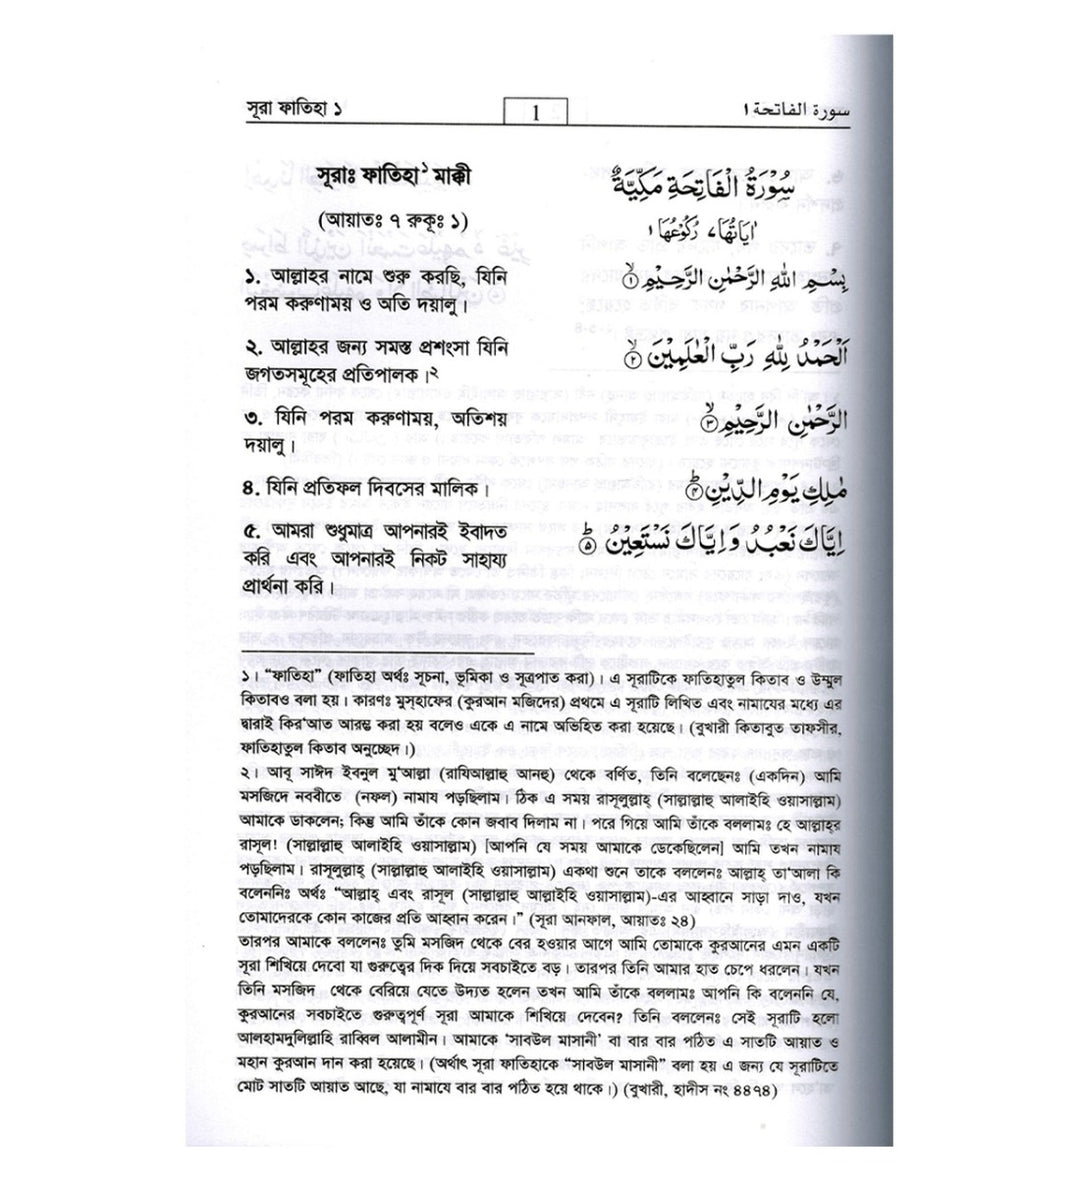 সূরা ফাতিহা ১
1
سورة الفاتحة ١
সূরাঃ ফাতিহা১ মাক্কী
(আয়াতঃ ৭ রুকূঃ ১)
১. আল্লাহর নামে শুরু করছি, যিনি
পরম করুণাময় ও অতি দয়ালু।
২. আল্লাহর জন্য সমস্ত প্রশংসা যিনি
জগতসমূহের প্রতিপালক।২
৩. যিনি পরম করুণাময়, অতিশয়
দয়ালু।
৪. যিনি প্রতিফল দিবসের মালিক।
৫. আমরা শুধুমাত্র আপনারই ইবাদত
করি এবং আপনারই নিকট সাহায্য
প্রার্থনা করি।
سُوْرَةُ الْفَاتِحَةِ مَكِّيَّةٌ
اٰيَاتُهَا ٧ رُكُوْعُهَا ١
بِسْمِ اللهِ الرَّحْمٰنِ الرَّحِيْمِ ۙ﴿١﴾
اَلْحَمْدُ لِلّٰهِ رَبِّ الْعٰلَمِيْنَ ۙ﴿٢﴾
الرَّحْمٰنِ الرَّحِيْمِ ۙ﴿٣﴾
مٰلِكِ يَوْمِ الدِّيْنِ ؕ﴿٤﴾
اِيَّاكَ نَعْبُدُ وَاِيَّاكَ نَسْتَعِيْنُ ؕ﴿٥﴾
১। “ফাতিহা” (ফাতিহা অর্থঃ সূচনা, ভূমিকা ও সূত্রপাত করা)। এ সূরাটিকে ফাতিহাতুল কিতাব ও উম্মুল
কিতাবও বলা হয়। কারণঃ মুস্হাফের (কুরআন মজিদের) প্রথমে এ সূরাটি লিখিত এবং নামাযের মধ্যে এর
দ্বারাই কির‘আত আরম্ভ করা হয় বলেও একে এ নামে অভিহিত করা হয়েছে। (বুখারী কিতাবুত তাফসীর,
ফাতিহাতুল কিতাব অনুচ্ছেদ।)
২। আবূ সাঈদ ইবনুল মু‘আল্লা (রাযিআল্লাহু আনহু) থেকে বর্ণিত, তিনি বলেছেনঃ (একদিন) আমি
মসজিদে নববীতে (নফল) নামায পড়ছিলাম। ঠিক এ সময় রাসূলুল্লাহ্ (সাল্লাল্লাহু আলাইহি ওয়াসাল্লাম)
আমাকে ডাকলেন; কিন্তু আমি তাঁকে কোন জবাব দিলাম না। পরে গিয়ে আমি তাঁকে বললামঃ হে আল্লাহ্‌র
রাসূল! (সাল্লাল্লাহু আলাইহি ওয়াসাল্লাম) [আপনি যে সময় আমাকে ডেকেছিলেন] আমি তখন নামায
পড়ছিলাম। রাসূলুল্লাহ্ (সাল্লাল্লাহু আলাইহি ওয়াসাল্লাম) একথা শুনে তাকে বললেনঃ আল্লাহ্ তা‘আলা কি
বলেননিঃ অর্থঃ “আল্লাহ্ এবং রাসূল (সাল্লাল্লাহু আল্লাইহি ওয়াসাল্লাম)-এর আহ্বানে সাড়া দাও, যখন
তোমাদেরকে কোন কাজের প্রতি আহ্বান করেন।” (সূরা আনফাল, আয়াতঃ ২৪)
তারপর আমাকে বললেনঃ তুমি মসজিদ থেকে বের হওয়ার আগে আমি তোমাকে কুরআনের এমন একটি
সূরা শিখিয়ে দেবো যা গুরুত্বের দিক দিয়ে সবচাইতে বড়। তারপর তিনি আমার হাত চেপে ধরলেন। যখন
তিনি মসজিদ থেকে বেরিয়ে যেতে উদ্যত হলেন তখন আমি তাঁকে বললামঃ আপনি কি বলেননি যে,
কুরআনের সবচাইতে গুরুত্বপূর্ণ সূরা আমাকে শিখিয়ে দেবেন? তিনি বললেনঃ সেই সূরাটি হলো
আলহামদুলিল্লাহি রাব্বিল আলামীন। আমাকে ‘সাবউল মাসানী’ বা বার বার পঠিত এ সাতটি আয়াত ও
মহান কুরআন দান করা হয়েছে। (অর্থাৎ সূরা ফাতিহাকে “সাবউল মাসানী” বলা হয় এ জন্য যে সূরাটিতে
মোট সাতটি আয়াত আছে, যা নামাযে বার বার পঠিত হয়ে থাকে।) (বুখারী, হাদীস নং ৪৪৭৪)